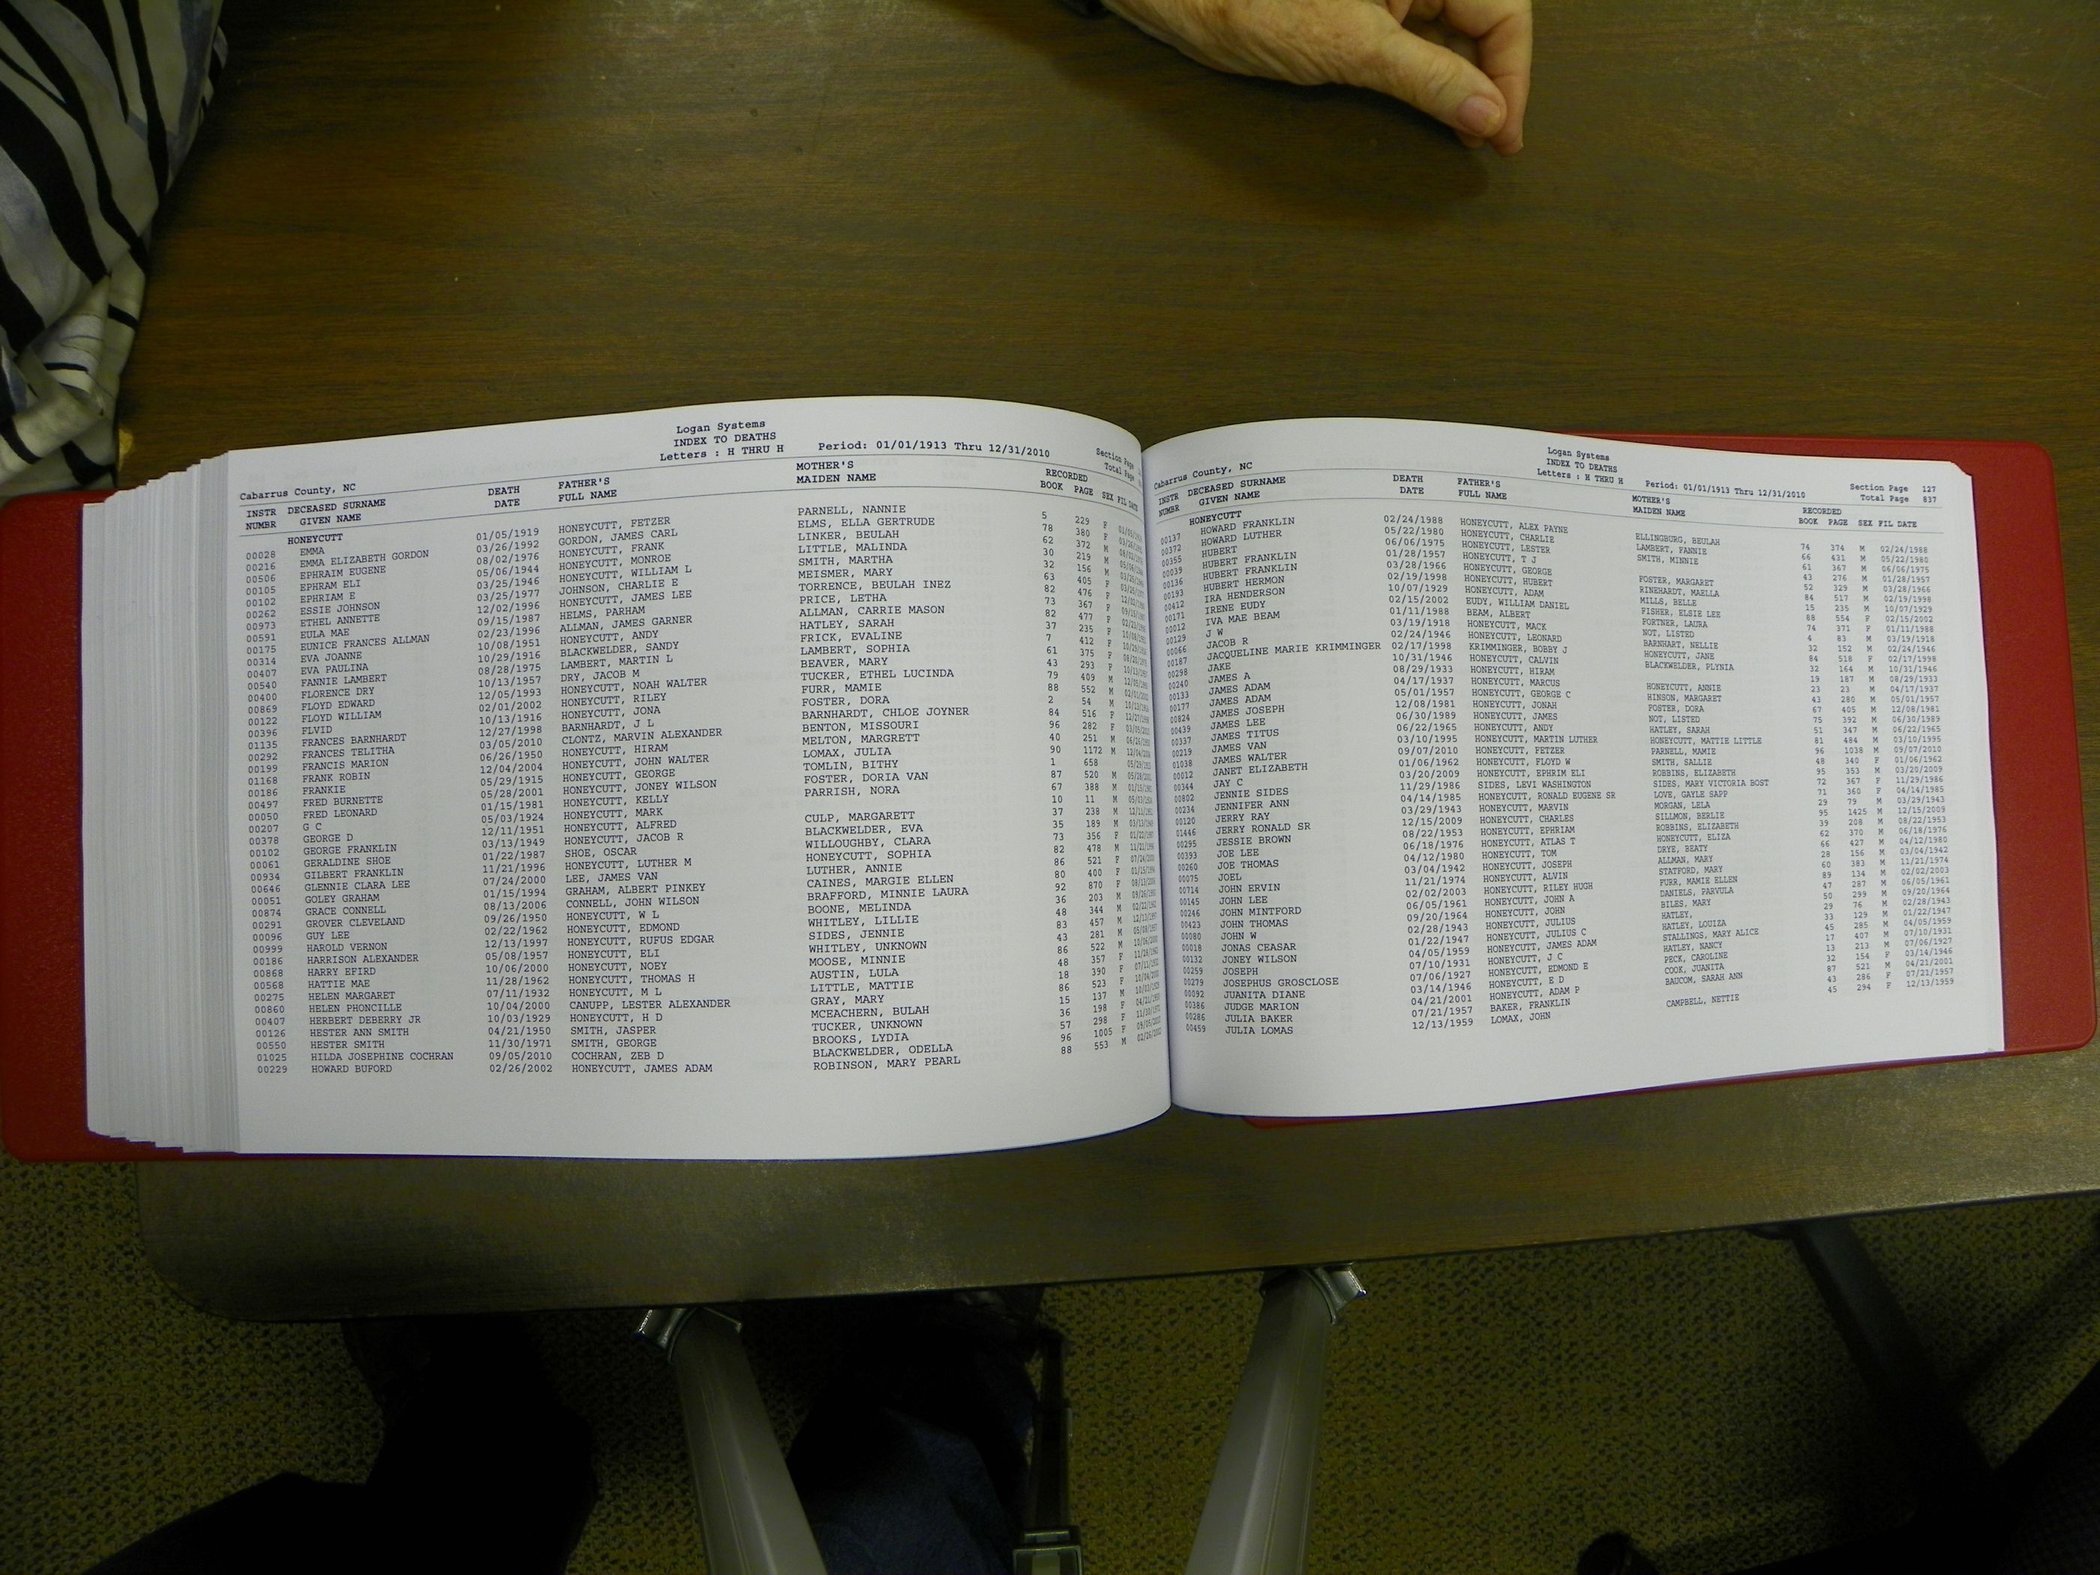 Logan Systems
INDEX TO DEATHS
Letters : H THRU H Period: 01/01/1913 Thru 12/31/2010
Section Page
Total Page
Cabarrus County, NC
INSTR DECEASED SURNAME DEATH FATHER'S MOTHER'S RECORDED
NUMBR GIVEN NAME DATE FULL NAME MAIDEN NAME BOOK PAGE SEX FIL DATE
HONEYCUTT
00028 EMMA 01/05/1919 HONEYCUTT, FETZER PARNELL, NANNIE 5 229 F
00216 EMMA ELIZABETH GORDON 03/26/1992 GORDON, JAMES CARL ELMS, ELLA GERTRUDE 78 380 F
00506 EPHRAIM EUGENE 08/02/1976 HONEYCUTT, FRANK LINKER, BEULAH 62 372 M
00105 EPHRAM ELI 05/06/1944 HONEYCUTT, MONROE LITTLE, MALINDA 30 219 M
00102 EPHRIAM E 03/25/1946 HONEYCUTT, WILLIAM L SMITH, MARTHA 32 156 M
00262 ESSIE JOHNSON 03/25/1977 JOHNSON, CHARLIE E MEISMER, MARY 63 405 F
00973 ETHEL ANNETTE 12/02/1996 HONEYCUTT, JAMES LEE TORRENCE, BEULAH INEZ 82 476 F
00591 EULA MAE 09/15/1987 HELMS, PARHAM PRICE, LETHA 73 367 F
00175 EUNICE FRANCES ALLMAN 02/23/1996 ALLMAN, JAMES GARNER ALLMAN, CARRIE MASON 82 477 F
00314 EVA JOANNE 10/08/1951 HONEYCUTT, ANDY HATLEY, SARAH 37 235 F
00407 EVA PAULINA 10/29/1916 BLACKWELDER, SANDY FRICK, EVALINE 7 412 F
00540 FANNIE LAMBERT 08/28/1975 LAMBERT, MARTIN L LAMBERT, SOPHIA 61 375 F
00400 FLORENCE DRY 10/13/1957 DRY, JACOB M BEAVER, MARY 43 293 F
00869 FLOYD EDWARD 12/05/1993 HONEYCUTT, NOAH WALTER TUCKER, ETHEL LUCINDA 79 409 M
00122 FLOYD WILLIAM 02/01/2002 HONEYCUTT, RILEY FURR, MAMIE 88 552 M
00396 FLVID 10/13/1916 HONEYCUTT, JONA FOSTER, DORA 2 54 M
01135 FRANCES BARNHARDT 12/27/1998 BARNHARDT, J L BARNHARDT, CHLOE JOYNER 84 516 F
00292 FRANCES TELITHA 03/05/2010 CLONTZ, MARVIN ALEXANDER BENTON, MISSOURI 96 282 F
00199 FRANCIS MARION 06/26/1950 HONEYCUTT, HIRAM MELTON, MARGRETT 40 251 M
01168 FRANK ROBIN 12/04/2004 HONEYCUTT, JOHN WALTER LOMAX, JULIA 90 1172 M
00186 FRANKIE 05/29/1915 HONEYCUTT, GEORGE TOMLIN, BITHY 1 658
00497 FRED BURNETTE 05/28/2001 HONEYCUTT, JONEY WILSON FOSTER, DORIA VAN 87 520 M
00050 FRED LEONARD 01/15/1981 HONEYCUTT, KELLY PARRISH, NORA 67 388 M
00207 G C 05/03/1924 HONEYCUTT, MARK 10 11 M
00378 GEORGE D 12/11/1951 HONEYCUTT, ALFRED CULP, MARGARETT 37 238 M
00102 GEORGE FRANKLIN 03/13/1949 HONEYCUTT, JACOB R BLACKWELDER, EVA 35 189 M
00061 GERALDINE SHOE 01/22/1987 SHOE, OSCAR WILLOUGHBY, CLARA 73 356 F
00934 GILBERT FRANKLIN 11/21/1996 HONEYCUTT, LUTHER M HONEYCUTT, SOPHIA 82 478 M
00646 GLENNIE CLARA LEE 07/24/2000 LEE, JAMES VAN LUTHER, ANNIE 86 521 F
00051 GOLEY GRAHAM 01/15/1994 GRAHAM, ALBERT PINKEY CAINES, MARGIE ELLEN 80 400 F
00874 GRACE CONNELL 08/13/2006 CONNELL, JOHN WILSON BRAFFORD, MINNIE LAURA 92 870 F
00291 GROVER CLEVELAND 09/26/1950 HONEYCUTT, W L BOONE, MELINDA 36 203 M
00096 GUY LEE 02/22/1962 HONEYCUTT, EDMOND WHITLEY, LILLIE 48 344 M
00999 HAROLD VERNON 12/13/1997 HONEYCUTT, RUFUS EDGAR SIDES, JENNIE 83 457 M
00186 HARRISON ALEXANDER 05/08/1957 HONEYCUTT, ELI WHITLEY, UNKNOWN 43 281 M
00868 HARRY EFIRD 10/06/2000 HONEYCUTT, NOEY MOOSE, MINNIE 86 522 M
00568 HATTIE MAE 11/28/1962 HONEYCUTT, THOMAS H AUSTIN, LULA 48 357 F
00275 HELEN MARGARET 07/11/1932 HONEYCUTT, M L LITTLE, MATTIE 18 390 F
00860 HELEN PHONCILLE 10/04/2000 CANUPP, LESTER ALEXANDER GRAY, MARY 86 523 F
00407 HERBERT DEBERRY JR 10/03/1929 HONEYCUTT, H D MCEACHERN, BULAH 15 137 M
00126 HESTER ANN SMITH 04/21/1950 SMITH, JASPER TUCKER, UNKNOWN 36 198 F
00550 HESTER SMITH 11/30/1971 SMITH, GEORGE BROOKS, LYDIA 57 298 F
01025 HILDA JOSEPHINE COCHRAN 09/05/2010 COCHRAN, ZEB D BLACKWELDER, ODELLA 96 1005 F
00229 HOWARD BUFORD 02/26/2002 HONEYCUTT, JAMES ADAM ROBINSON, MARY PEARL 88 553 M
Logan Systems
INDEX TO DEATHS
Letters : H THRU H Period: 01/01/1913 Thru 12/31/2010
Section Page 127
Total Page 837
Cabarrus County, NC
INSTR DECEASED SURNAME DEATH FATHER'S MOTHER'S RECORDED
NUMBR GIVEN NAME DATE FULL NAME MAIDEN NAME BOOK PAGE SEX FIL DATE
HONEYCUTT
00137 HOWARD FRANKLIN 02/24/1988 HONEYCUTT, ALEX PAYNE ELLINGBURG, BEULAH 74 374 M 02/24/1988
00372 HOWARD LUTHER 05/22/1980 HONEYCUTT, CHARLIE LAMBERT, FANNIE 66 431 M 05/22/1980
00355 HUBERT 06/06/1975 HONEYCUTT, LESTER SMITH, MINNIE 61 367 M 06/06/1975
00039 HUBERT FRANKLIN 01/28/1957 HONEYCUTT, T J 43 276 M 01/28/1957
00136 HUBERT FRANKLIN 03/28/1966 HONEYCUTT, GEORGE FOSTER, MARGARET 52 329 M 03/28/1966
00193 HUBERT HERMON 02/19/1998 HONEYCUTT, HUBERT RINEHARDT, MAELLA 84 517 M 02/19/1998
00412 IRA HENDERSON 10/07/1929 HONEYCUTT, ADAM MILLS, BELLE 15 235 M 10/07/1929
00171 IRENE EUDY 02/15/2002 EUDY, WILLIAM DANIEL FISHER, ELSIE LEE 88 554 F 02/15/2002
00012 IVA MAE BEAM 01/11/1988 BEAM, ALBERT FORTNER, LAURA 74 371 F 01/11/1988
00129 J W 03/19/1918 HONEYCUTT, MACK NOT, LISTED 4 83 M 03/19/1918
00066 JACOB R 02/24/1946 HONEYCUTT, LEONARD BARNHART, NELLIE 32 152 M 02/24/1946
00187 JACQUELINE MARIE KRIMMINGER 02/17/1998 KRIMMINGER, BOBBY J HONEYCUTT, JANE 84 518 F 02/17/1998
00298 JAKE 10/31/1946 HONEYCUTT, CALVIN BLACKWELDER, PLYNIA 32 164 M 10/31/1946
00240 JAMES A 08/29/1933 HONEYCUTT, HIRAM 19 187 M 08/29/1933
00133 JAMES ADAM 04/17/1937 HONEYCUTT, MARCUS HONEYCUTT, ANNIE 23 23 M 04/17/1937
00177 JAMES ADAM 05/01/1957 HONEYCUTT, GEORGE C HINSON, MARGARET 43 280 M 05/01/1957
00824 JAMES JOSEPH 12/08/1981 HONEYCUTT, JONAH FOSTER, DORA 67 405 M 12/08/1981
00439 JAMES LEE 06/30/1989 HONEYCUTT, JAMES NOT, LISTED 75 392 M 06/30/1989
00337 JAMES TITUS 06/22/1965 HONEYCUTT, ANDY HATLEY, SARAH 51 347 M 06/22/1965
00219 JAMES VAN 03/10/1995 HONEYCUTT, MARTIN LUTHER HONEYCUTT, MATTIE LITTLE 81 484 M 03/10/1995
01038 JAMES WALTER 09/07/2010 HONEYCUTT, FETZER PARNELL, MAMIE 96 1038 M 09/07/2010
00012 JANET ELIZABETH 01/06/1962 HONEYCUTT, FLOYD W SMITH, SALLIE 48 340 F 01/06/1962
00344 JAY C 03/20/2009 HONEYCUTT, EPHRIM ELI ROBBINS, ELIZABETH 95 353 M 03/20/2009
00802 JENNIE SIDES 11/29/1986 SIDES, LEVI WASHINGTON SIDES, MARY VICTORIA BOST 72 367 F 11/29/1986
00234 JENNIFER ANN 04/14/1985 HONEYCUTT, RONALD EUGENE SR LOVE, GAYLE SAPP 71 360 F 04/14/1985
00120 JERRY RAY 03/29/1943 HONEYCUTT, MARVIN MORGAN, LELA 29 79 M 03/29/1943
01446 JERRY RONALD SR 12/15/2009 HONEYCUTT, CHARLES SILLMON, BERLIE 95 1425 M 12/15/2009
00295 JESSIE BROWN 08/22/1953 HONEYCUTT, EPHRIAM ROBBINS, ELIZABETH 39 208 M 08/22/1953
00393 JOE LEE 06/18/1976 HONEYCUTT, ATLAS T HONEYCUTT, ELIZA 62 370 M 06/18/1976
00260 JOE THOMAS 04/12/1980 HONEYCUTT, TOM DRYE, BEATY 66 427 M 04/12/1980
00075 JOEL 03/04/1942 HONEYCUTT, JOSEPH ALLMAN, MARY 28 156 M 03/04/1942
00714 JOHN ERVIN 11/21/1974 HONEYCUTT, ALVIN STATFORD, MARY 60 383 M 11/21/1974
00145 JOHN LEE 02/02/2003 HONEYCUTT, RILEY HUGH FURR, MAMIE ELLEN 89 134 M 02/02/2003
00246 JOHN MINTFORD 06/05/1961 HONEYCUTT, JOHN A DANIELS, PARVULA 47 287 M 06/05/1961
00423 JOHN THOMAS 09/20/1964 HONEYCUTT, JOHN BILES, MARY 50 299 M 09/20/1964
00080 JOHN W 02/28/1943 HONEYCUTT, JULIUS HATLEY, 29 76 M 02/28/1943
00018 JONAS CEASAR 01/22/1947 HONEYCUTT, JULIUS C HATLEY, LOUIZA 33 129 M 01/22/1947
00132 JONEY WILSON 04/05/1959 HONEYCUTT, JAMES ADAM STALLINGS, MARY ALICE 45 285 M 04/05/1959
00259 JOSEPH 07/10/1931 HONEYCUTT, J C HATLEY, NANCY 17 407 M 07/10/1931
00279 JOSEPHUS GROSCLOSE 07/06/1927 HONEYCUTT, EDMOND E PECK, CAROLINE 13 213 M 07/06/1927
00092 JUANITA DIANE 03/14/1946 HONEYCUTT, E D COOK, JUANITA 32 154 F 03/14/1946
00386 JUDGE MARION 04/21/2001 HONEYCUTT, ADAM P BAUCOM, SARAH ANN 87 521 M 04/21/2001
00286 JULIA BAKER 07/21/1957 BAKER, FRANKLIN 43 286 F 07/21/1957
00459 JULIA LOMAS 12/13/1959 LOMAX, JOHN CAMPBELL, NETTIE 45 294 F 12/13/1959